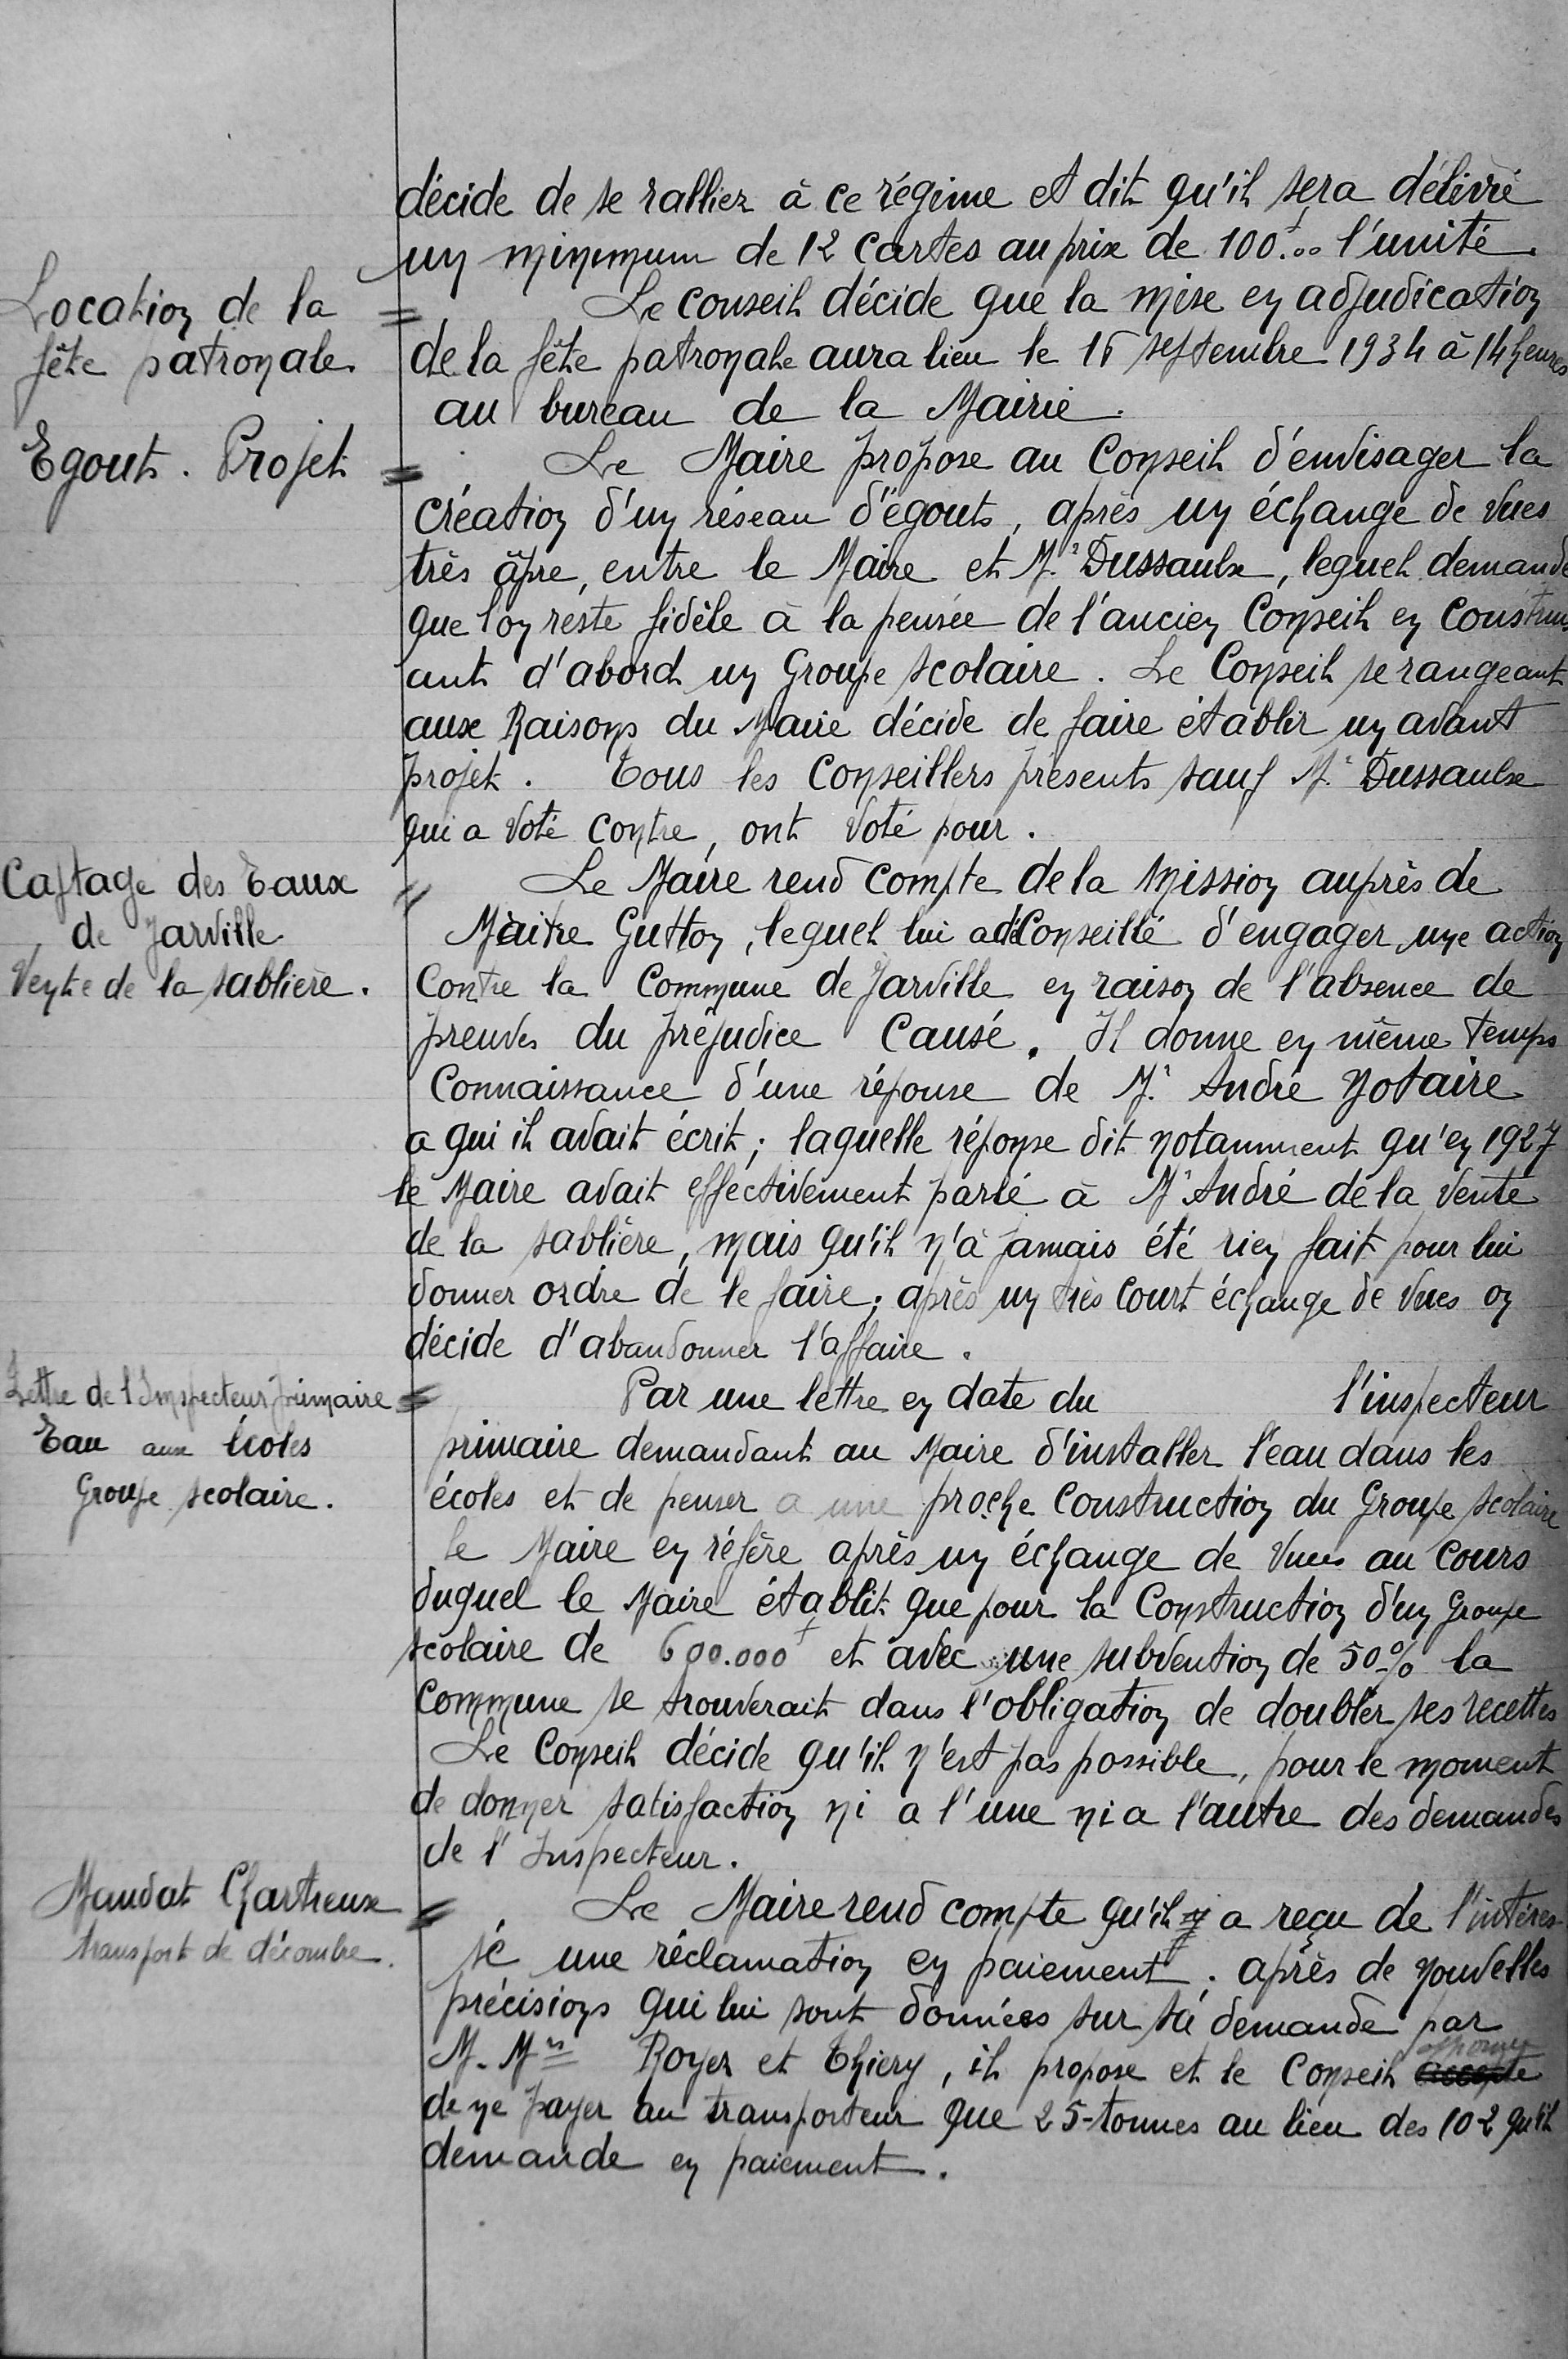 décide de se rallier à ce régime et dit qu'il sera délivré
un minimum de 12 cartes au prix de 100f.00 l'unité.
Location de la
fête patronale.
= Le conseil décide que la mise en adjudication
de la fête patronale aura lieu le 16 septembre 1934 à 14 heures
au bureau de la Mairie.
Egouts. Projet
= Le Maire propose au Conseil d'envisager la
création d'un réseau d'égouts, après un échange de vues
très âpre, entre le Maire et Mr Dussaulx, lequel demande
que l'on reste fidèle à la pensée de l'ancien Conseil en constru
ant d'abord un Groupe scolaire. Le Conseil se rangeant
aux Raisons du Maire décide de faire établir un avant
projet. Tous les Conseillers présents sauf Mr Dussaulx
qui a voté contre, ont voté pour.
Captage des Eaux
de Jarville
Vente de la sablière.
= Le Maire rend compte de la Mission auprès de
Maitre Gutton, lequel lui a déconseillé d'engager une action
contre la Commune de Jarville en raison de l'absence de
preuves du préjudice causé. Il donne en même temps
connaissance d'une réponse de Mr André Notaire
a qui il avait écrit; laquelle réponse dit notamment qu'en 1927
le Maire avait effectivement parlé à Mr André de la vente
de la sablière, mais qu'il n'a jamais été rien fait pour lui
donner ordre de le faire; après un très court échange de vues on
décide d'abandonner l'affaire.
Lettre de l'Inspecteur primaire
Eau aux écoles
Groupe scolaire.
= Par une lettre en date du l'inspecteur
primaire demandant au Maire d'installer l'eau dans les
écoles et de penser a une proche construction du Groupe scolaire
le Maire en réfère après un échange de vues au cours
duquel le Maire établit que pour la Construction d'un Groupe
scolaire de 600.000f et avec une subvention de 50% la
commune se trouverait dans l'obligation de doubler ses recettes
Le Conseil décide qu'il n'est pas possible, pour le moment
de donner satisfaction ni a l'une ni a l'autre des demandes
de l'Inspecteur.
Mandat Chartreux
transport de décombre.
= Le Maire rend compte qu'il a reçu de l'intéres
sé une réclamation en paiement. après de nouvelles
précisions qui lui sont données sur sa demande par
M. Mrs Royer et Thiery, il propose et le Conseil accepte
de ne payer au transporteur que 25 tonnes au lieu des 102 qu'il
demande en paiement.